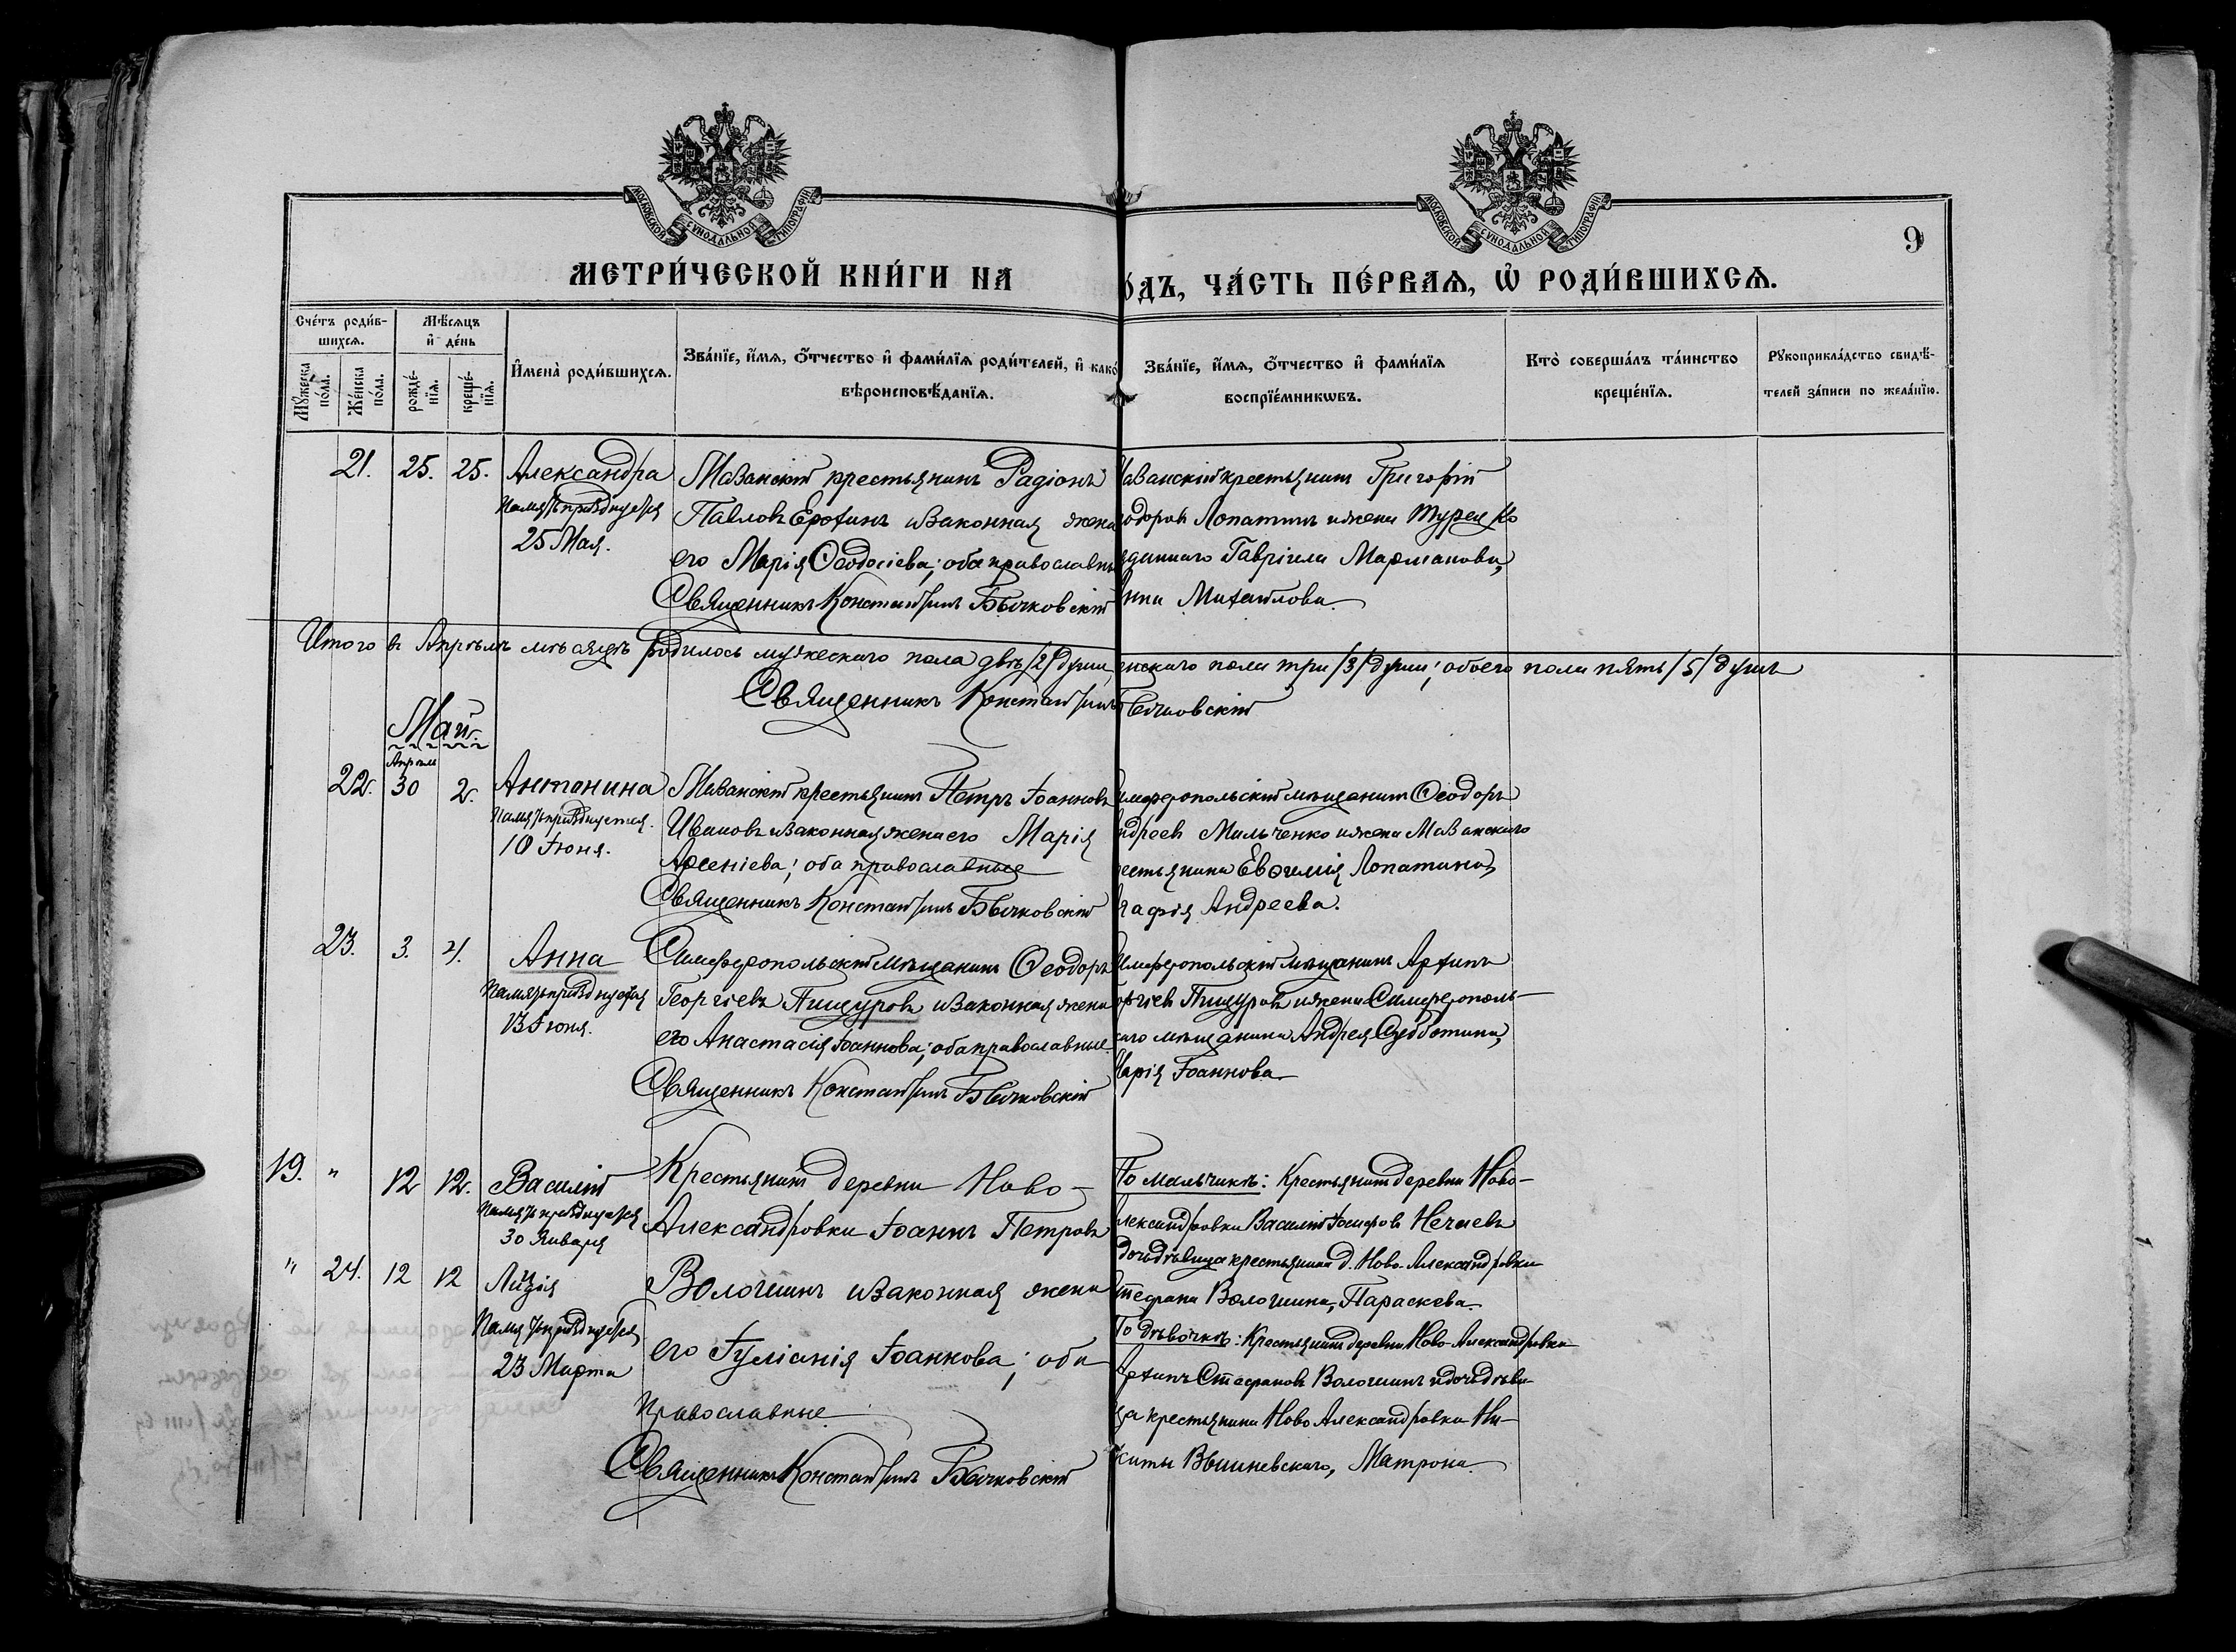 МОСКОВСКОЙ СУНОДАЛЬНОЙ ТИПОГРАФІИ
МОСКОВСКОЙ СУНОДАЛЬНОЙ ТИПОГРАФІИ
9
МЕТРИ́ЧЕСКОЙ КНИ́ГИ НА
О́ДЪ, ЧА́СТЬ ПЕ́РВАѦ, Ѿ РОДИ́ВШИХСѦ.
Сче́тъ роди́в-
шихсѧ.
Мѣ́сѧцъ
и҆ де́нь
Мꙋ́жеска по́ла.
Же́нска по́ла.
рожде́-нїѧ.
креще́-нїѧ.
И҆мена̀ роди́вшихсѧ.
Зва́нїе, и҆́мѧ, ѻ҆́тчество и҆ фами́лїѧ роди́телей, и҆ како́
вѣроисповѣ́данїѧ.
Зва́нїе, и҆́мѧ, ѻ҆́тчество и҆ фами́лїѧ
воспрїе́мникѡвъ.
Кто̀ соверша́лъ та́инство
креще́нїѧ.
Рꙋкоприкла́дство свидѣ́-
телей за́писи по жела́нїю.
21. 25. 25. Александра
Память празднуется
25 Мая.
Мазанскій крестьянинъ Радіонъ
Павловъ Ерохинъ и законная жена
его Марія Ѳеодосіева; оба православные
Священникъ Константинъ Бычковскій
азанскій крестьянинъ Григорій
одоровъ Лопатинъ и жена
Гавріила Марманова,
нна Михайлова.
Итого въ Апрѣлѣ мѣсяцѣ родилось мужескаго пола двѣ /2/ души,
енскаго пола три /3/ души; обоего пола пять /5/ душъ
Священникъ Константинъ
Бычковскій
Май.
Апрѣля
22. 30 2. Антонина
Память празднуется.
10 Іюня.
Мазанскій крестьянинъ Петръ Іоанновъ
Ивановъ и законная жена его Марія
Арсеніева; оба православные
Священникъ Константинъ Бычковскій
имферопольскій мѣщанинъ Ѳеодоръ
ндреевъ Мильченко и жена Мазанскаго
рестьянина Евѳимія Лопатина,
гафія Андреева.
23. 3. 4. Анна
Память празднуется
13 Іюня.
Симферопольскій мѣщанинъ Ѳеодоръ
Георгіевъ Пищуровъ и законная жена
его Анастасія Іоаннова; оба православные.
Священникъ Константинъ Бычковскій
имферопольскій мѣщанинъ Архипъ
оргіевъ Пищуровъ и жена Симферополь-
скаго мѣщанина Андрея Субботина,
Марія Іоаннова.
19. " 12 12. Василій
Память празднуется
30 Января
" 24. 12 12 Лидія
Память празднуется
23 Марта
Крестьянинъ деревни Ново-
Александровки Іоаннъ Петровъ
Волошинъ и законная жена
его Іуліанія Іоаннова; оба
православные
Священникъ Константинъ Бычковскій
По мальчикѣ: Крестьянинъ деревни Ново-
лександровки Василій Іосифовъ Нечаевъ
дочь дѣвица крестьянина д. Ново-Александровки
Стефана Волошина, Параскева.
По дѣвочкѣ: Крестьянинъ деревни Ново-Александровки
Архипъ Стефановъ Волошинъ и дочь дѣви-
ца крестьянина Ново Александровки Ни-
киты Вышневскаго, Матрона.